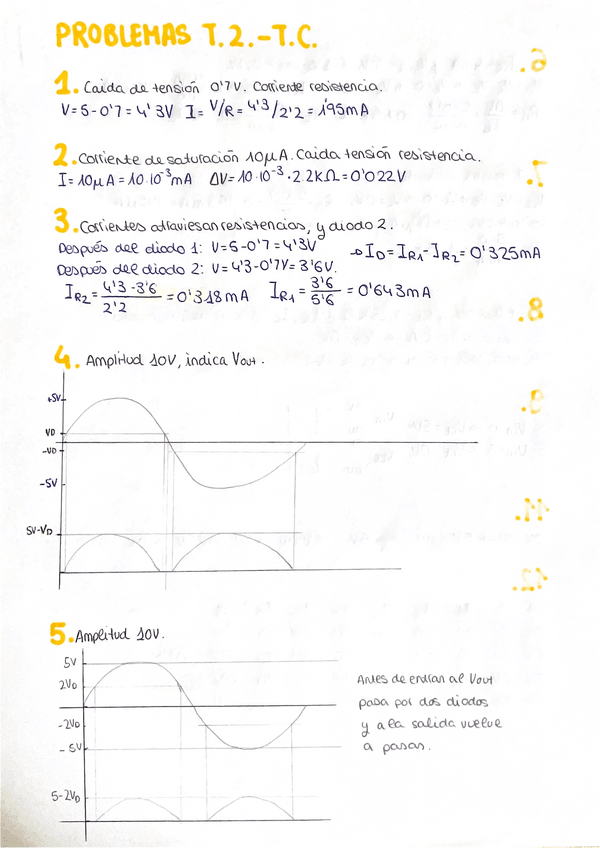 PROBLEMAS T.2.-T.C.
1. Caida de tensión 0'7V. Corriente resistencia.
V=5-0'7=4'3V I=V/R=4'3/2'2=1'95mA
2. Corriente de saturación 10μA. Caida tensión resistencia.
I=10μA=10·10⁻³mA ΔV=10·10⁻³·2.2KΩ=0'022V
3. Corrientes atraviesan resistencias, y diodo 2.
Después del diodo 1: V=5-0'7=4'3V → I_D=I_R1-I_R2=0'325mA
Después del diodo 2: V=4'3-0'7V=3'6V.
I_R2=4'3-3'6/2'2=0'318mA I_R1=3'6/5'6=0'643mA
4. Amplitud 10V, indica Vout.
+5V
VD
-VD
-5V
5V-VD
5. Amplitud 10V.
5V
2VD
-2VD
-5V
5-2VD
Antes de entrar al Vout
pasa por dos diodos
y a la salida vuelve
a pasar.
6.
7.
8.
9.
11.
12.